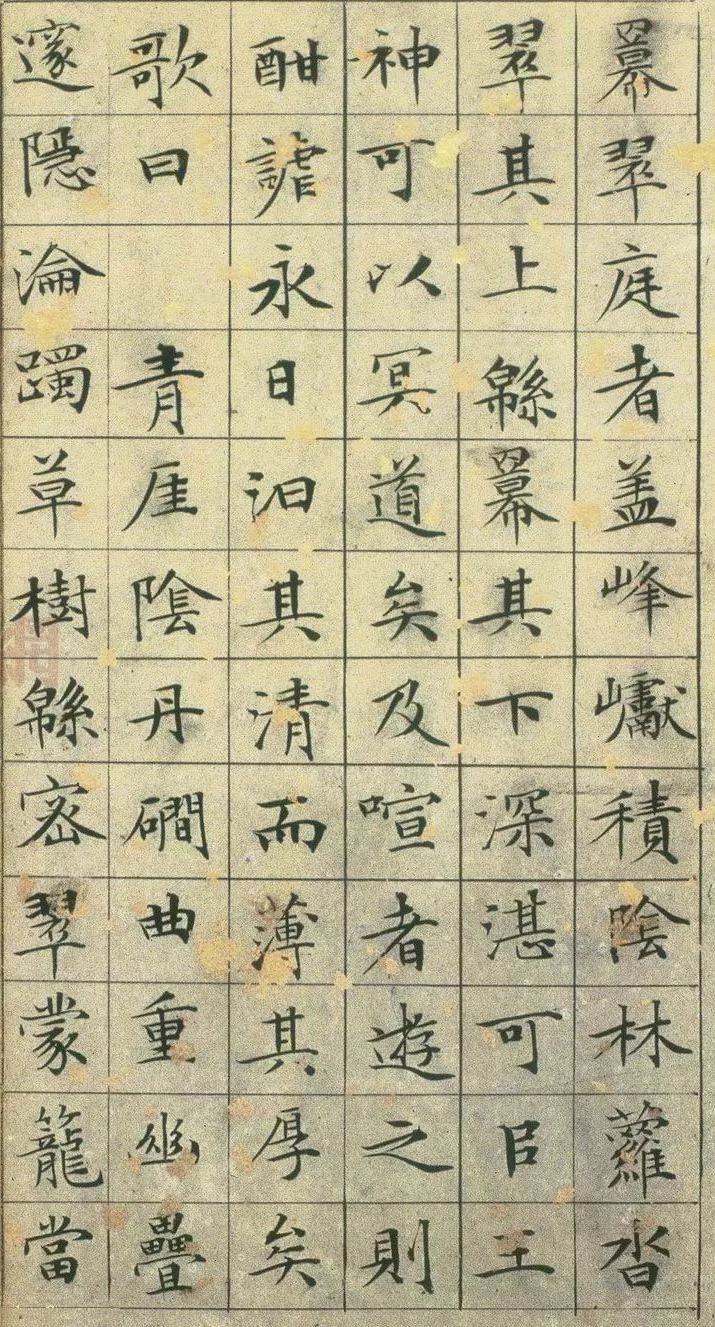 羃翠庭者盖峰巘積陰林蘿沓
翠其上緜羃其下深湛可㠯王
神可以冥道矣及喧者遊之則
酣謔永日汩其清而薄其厚矣
歌曰　青厓陰丹磵曲重幽疊
邃隱淪躅草樹緜密翠蒙籠當